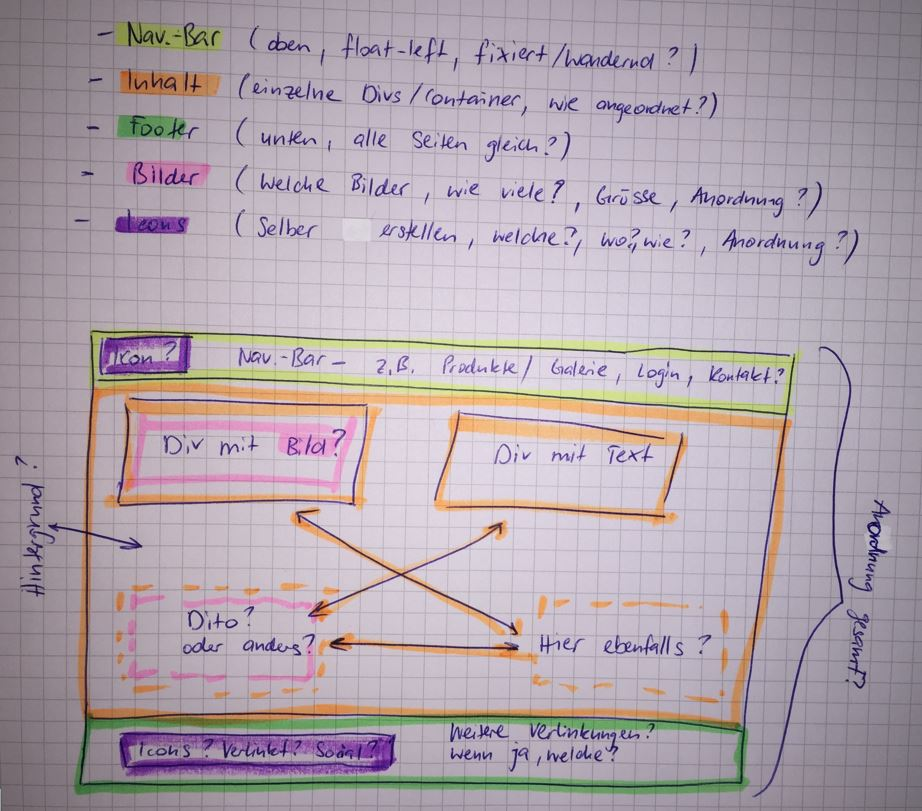 - Nav.-Bar (oben, float-left, fixiert/wandernd?)
- Inhalt (einzelne Divs/Container, wie angeordnet?)
- Footer (unten, alle Seiten gleich?)
- Bilder (Welche Bilder, wie viele?, Grösse, Anordnung?)
- Icons (Selber erstellen, welche?, wo?, wie?, Anordnung?)
Icon? Nav.-Bar - z.B. Produkte/Galerie, Login, Kontakt?
Div mit Bild?
Div mit Text
Hintergrund?
Anordnung gesamt?
Dito?
oder anders?
Hier ebenfalls?
Icons? Verlinkt? Social?
Weitere Verlinkungen?
wenn ja, welche?